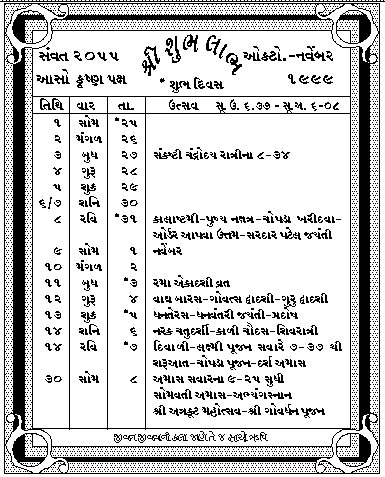 શ્રી શુભ લાભ
સંવત ૨૦૫૫ ઓક્ટો.-નવેંબર
આસો કૃષ્ણ પક્ષ * શુભ દિવસ ૧૯૯૯
તિથિ વાર તા. ઉત્સવ સૂ. ઉ. ૬.૩૭ - સૂ.અ. ૬-૦૮
૧ સોમ *૨૫
૨ મંગળ ૨૬
૩ બુધ ૨૭ સંકષ્ટી ચંદ્રોદય રાત્રીના ૮-૩૪
૪ ગુરૂ ૨૮
૫ શુક્ર ૨૯
૬/૭ શનિ ૩૦
૮ રવિ *૩૧ કાલાષ્ટમી-પુષ્ય નક્ષત્ર-ચોપડા ખરીદવા-
ઓર્ડર આપવા ઉત્તમ-સરદાર પટેલ જયંતી
૯ સોમ ૧ નવેંબર
૧૦ મંગળ ૨
૧૧ બુધ *૩ રમા એકાદશી વ્રત
૧૨ ગુરૂ ૪ વાઘ બારસ-ગોવત્સ દ્વાદશી-ગુરૂ દ્વાદશી
૧૩ શુક્ર *૫ ધનતેરસ-ધનવંતરી જયંતી-પ્રદોષ
૧૪ શનિ ૬ નરક ચતુર્દશી-કાળી ચૌદસ-શિવરાત્રી
૧૪ રવિ *૭ દિવાળી-લક્ષ્મી પૂજન સવારે ૭-૩૭ થી
શરૂઆત-ચોપડા પૂજન-દર્શ અમાસ
૩૦ સોમ ૮ અમાસ સવારના ૯-૨૫ સુધી
સોમવતી અમાસ-અભ્યંગસ્નાન
શ્રી અન્નકૂટ મહોત્સવ-શ્રી ગોવર્ધન પૂજન